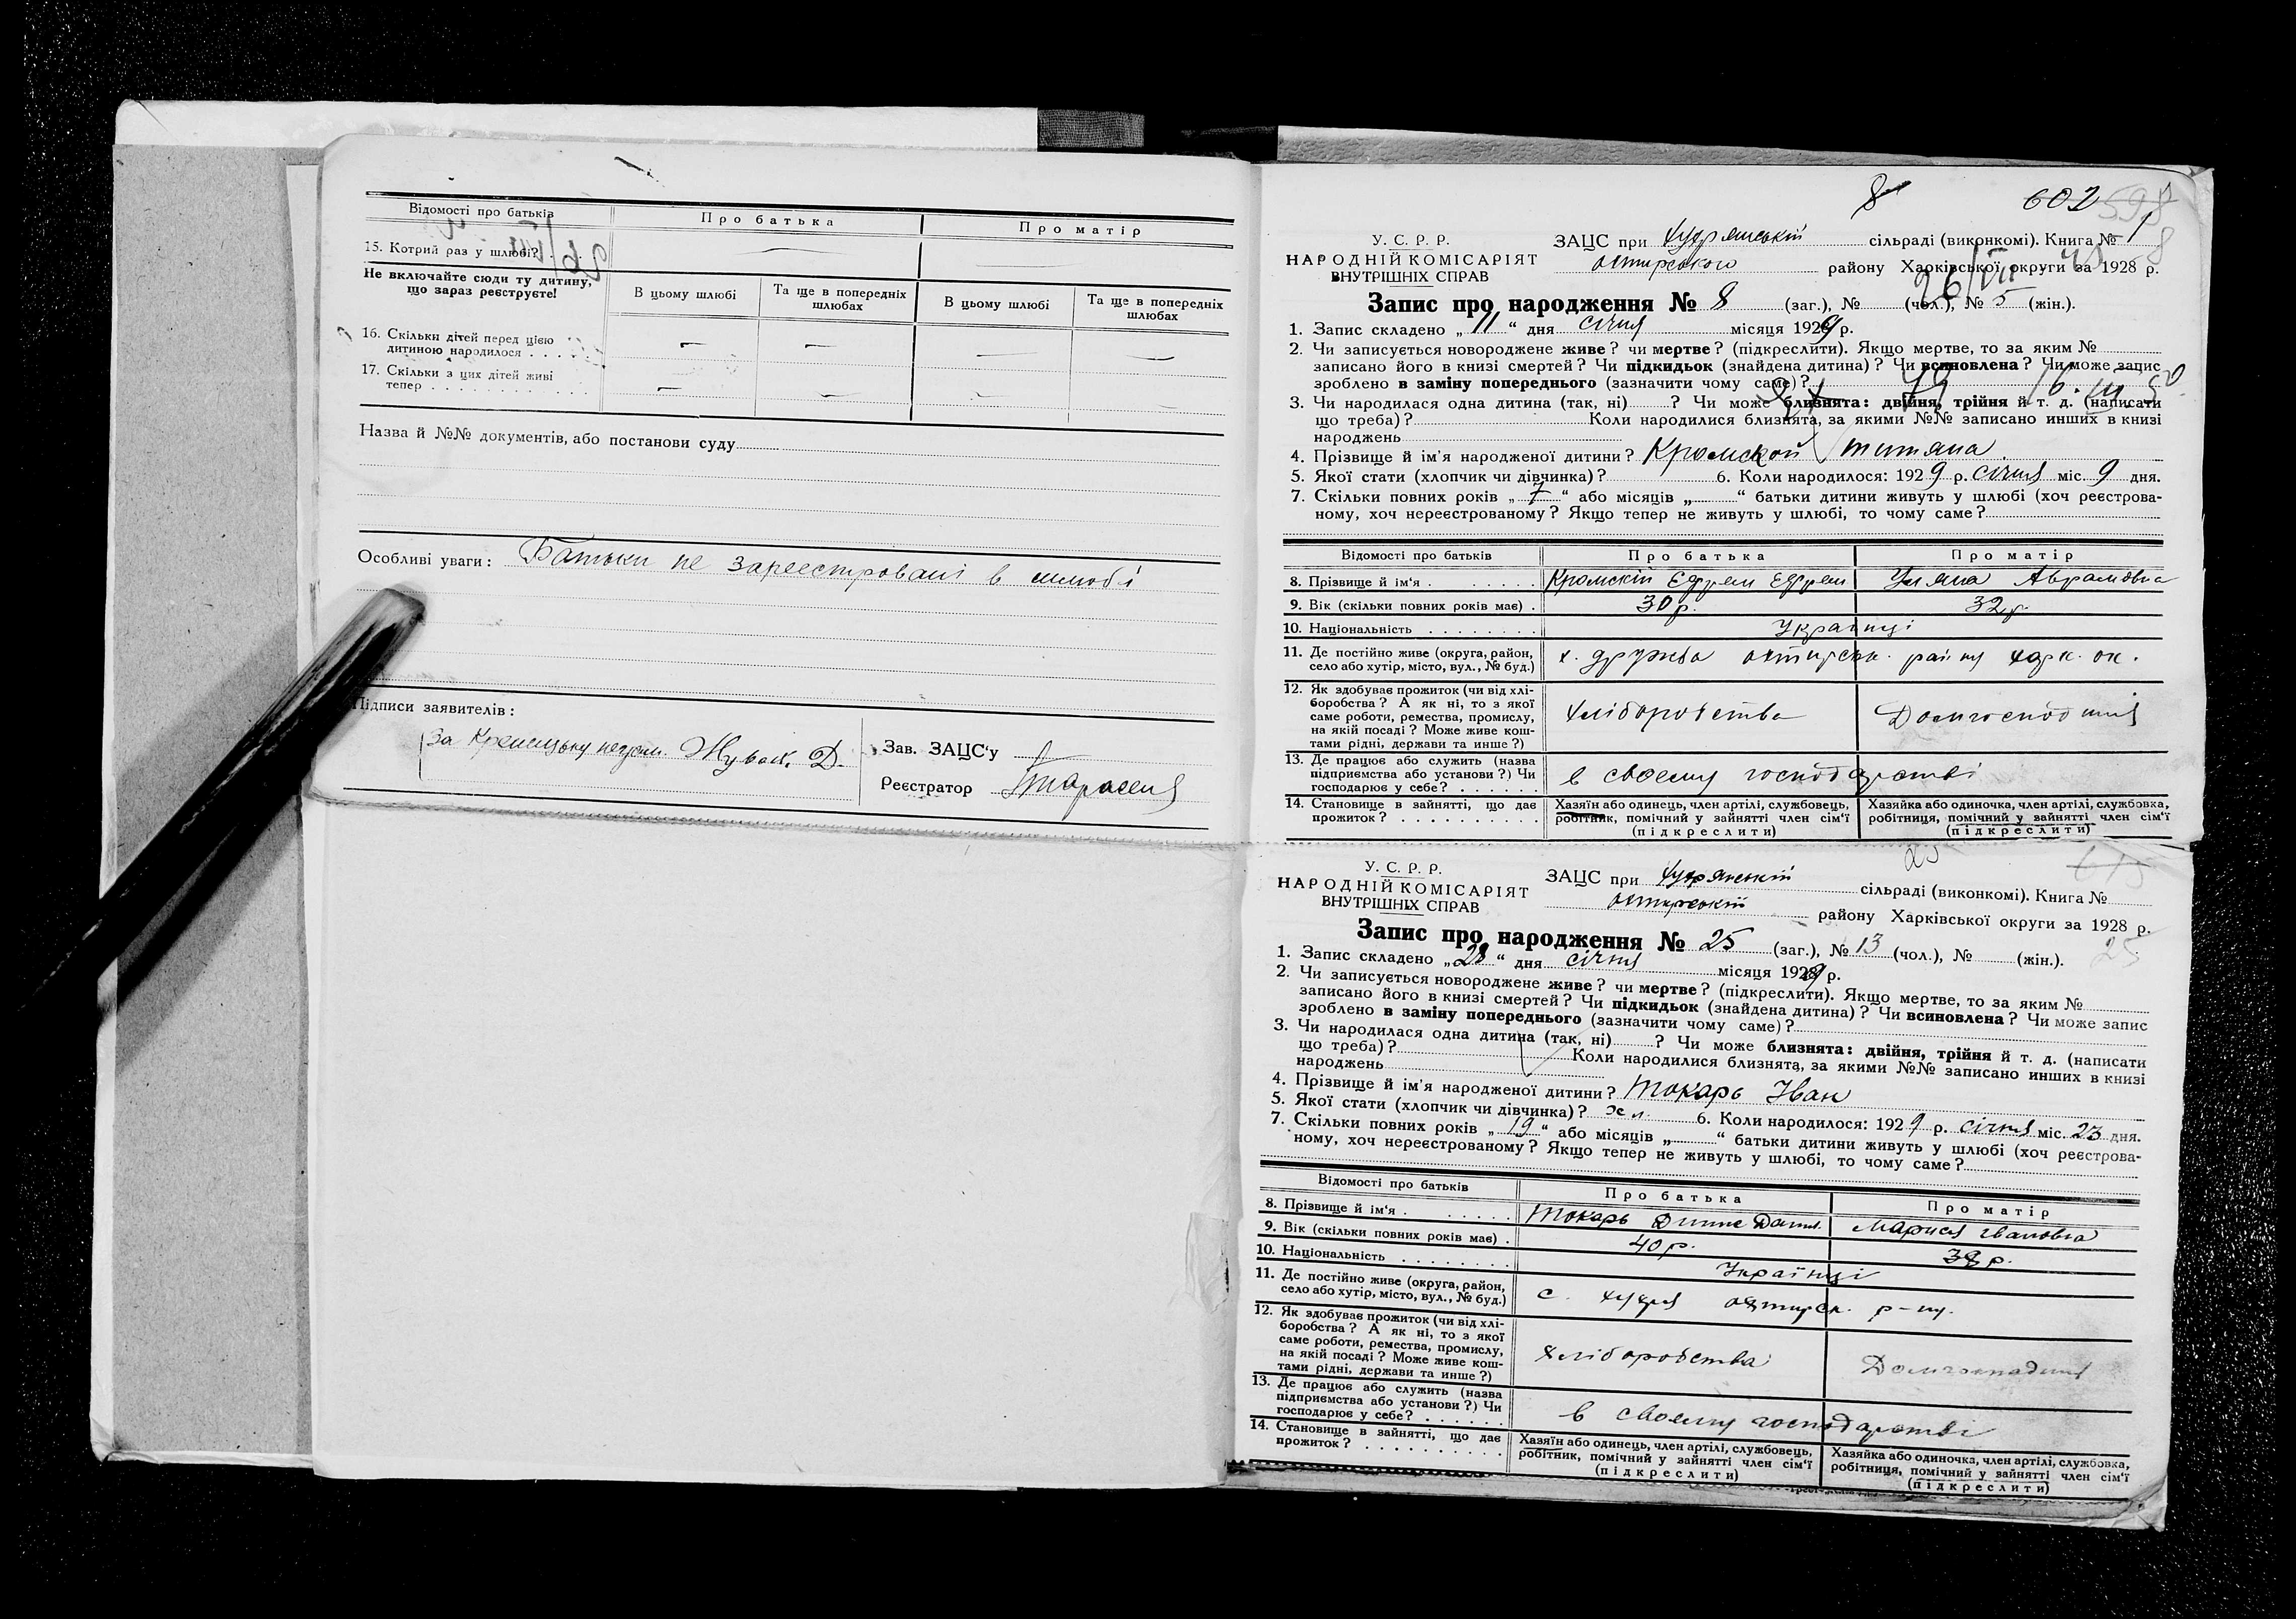 Відомості про батьків
Про батька
Про матір
15. Котрий раз у шлюбі?
Не включайте сюди ту дитину,
що зараз реєструєте!
В цьому шлюбі
Та ще в попередніх
шлюбах
В цьому шлюбі
Та ще в попередніх
шлюбах
16. Скільки дітей перед цією
дитиною народилося . . . .
17. Скільки з цих дітей живі
тепер . . . . . . . . . .
Назва й №№ документів, або постанови суду
Особливі уваги: Батьки не зареєстровані в шлюбі
Підписи заявителів:
За
Зав. ЗАЦС‘у
Реєстратор
8
602 598
У. С. Р. Р.
НАРОДНІЙ КОМІСАРІЯТ
ВНУТРІШНІХ СПРАВ
ЗАЦС при Хухрянській сільраді (виконкомі). Книга № 1
охтирського району Харківської округи за 1928 р.
26/VII
Запис про народження № 8 (заг.), № (чол.), № 5 (жін.).
1. Запис складено „11“ дня січня місяця 1929 р.
2. Чи записується новороджене живе? чи мертве? (підкреслити). Якщо мертве, то за яким №
записано його в книзі смертей? Чи підкидьок (знайдена дитина)? Чи всиновлена? Чи може запис
зроблено в заміну попереднього (зазначити чому саме)?
3. Чи народилася одна дитина (так, ні) ? Чи може близнята: двійня, трійня й т. д. (написати
що треба)? Коли народилися близнята, за якими №№ записано инших в книзі
народжень
4. Прізвище й ім‘я народженої дитини? Кромской Титяна
5. Якої стати (хлопчик чи дівчинка)? 6. Коли народилося: 1929 р. січня міс. 9 дня.
7. Скільки повних років „7“ або місяців „ “ батьки дитини живуть у шлюбі (хоч реєстрова-
ному, хоч нереєстрованому? Якщо тепер не живуть у шлюбі, то чому саме?
Відомості про батьків
Про батька
Про матір
8. Прізвище й ім‘я . Кромскій Ефрем Ефрем Уляна Аврамовна
9. Вік (скільки повних років має) . 30 р. 32 р.
10. Національність . . . . . . . . Українці
11. Де постійно живе (округа, район,
село або хутір, місто, вул., № буд.)
х. дружба охтирськ. району харк. ок.
12. Як здобуває прожиток (чи від хлі-
боробства? А як ні, то з якої
саме роботи, ремества, промислу,
на якій посаді? Може живе кош-
тами рідні, держави та инше?)
хліборобства
Домгосподиня
13. Де працює або служить (назва
підприємства або установи?) Чи
господарює у себе? . . . . . .
в своєму господарстві
14. Становище в зайнятті, що дає
прожиток? . . . . . . . . . .
Хазяїн або одинець, член артілі, службовець,
робітник, помічний у зайнятті член сім‘ї
(підкреслити)
Хазяйка або одиночка, член артілі, службовка,
робітниця, помічний у зайнятті член сім‘ї
(підкреслити)
У. С. Р. Р.
НАРОДНІЙ КОМІСАРІЯТ
ВНУТРІШНІХ СПРАВ
ЗАЦС при Хухрянській сільраді (виконкомі). Книга №
охтирській району Харківської округи за 1928 р.
25
Запис про народження № 25 (заг.), № 13 (чол.), № (жін.).
1. Запис складено „28“ дня січня місяця 1929 р.
2. Чи записується новороджене живе? чи мертве? (підкреслити). Якщо мертве, то за яким №
записано його в книзі смертей? Чи підкидьок (знайдена дитина)? Чи всиновлена? Чи може запис
зроблено в заміну попереднього (зазначити чому саме)?
3. Чи народилася одна дитина (так, ні) ? Чи може близнята: двійня, трійня й т. д. (написати
що треба)? Коли народилися близнята, за якими №№ записано инших в книзі
народжень
4. Прізвище й ім‘я народженої дитини? Токарь Іван
5. Якої стати (хлопчик чи дівчинка)? хл. 6. Коли народилося: 1929 р. січня міс. 23 дня.
7. Скільки повних років „19“ або місяців „ “ батьки дитини живуть у шлюбі (хоч реєстрова-
ному, хоч нереєстрованому? Якщо тепер не живуть у шлюбі, то чому саме?
Відомості про батьків
Про батька
Про матір
8. Прізвище й ім‘я . Токарь Данил. Мария Івановна
9. Вік (скільки повних років має) . 40 р. 38 р.
10. Національність . . . . . . . . Українці
11. Де постійно живе (округа, район,
село або хутір, місто, вул., № буд.)
с. хухря охтирськ. р-ну.
12. Як здобуває прожиток (чи від хлі-
боробства? А як ні, то з якої
саме роботи, ремества, промислу,
на якій посаді? Може живе кош-
тами рідні, держави та инше?)
хліборобства
Домгосподиня
13. Де працює або служить (назва
підприємства або установи?) Чи
господарює у себе? . . . . . .
в своєму господарстві
14. Становище в зайнятті, що дає
прожиток? . . . . . . . . . .
Хазяїн або одинець, член артілі, службовець,
робітник, помічний у зайнятті член сім‘ї
(підкреслити)
Хазяйка або одиночка, член артілі, службовка,
робітниця, помічний у зайнятті член сім‘ї
(підкреслити)